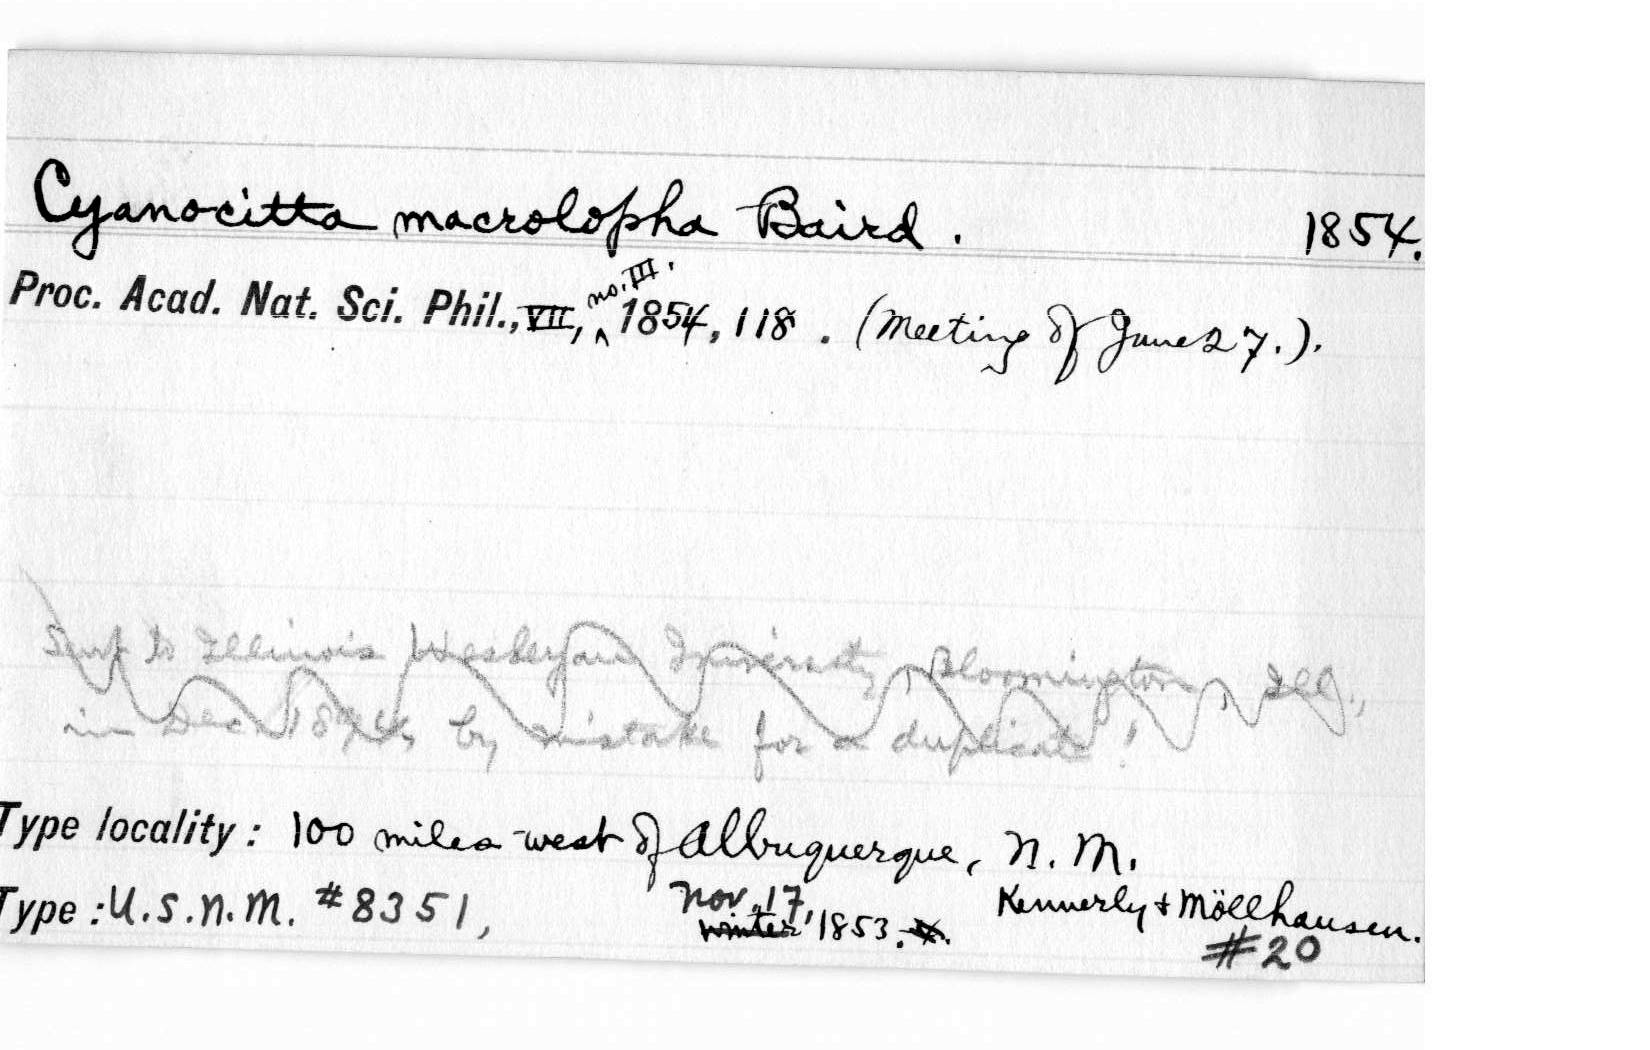 Cyanocitta macrolopha Baird. 1854.
Proc. Acad. Nat. Sci. Phil., VII, no. III. 1854, 118. (Meeting of June 27.).
Sent to Illinois Wesleyan University, Bloomington, Ill.,
in Dec. by mistake for a duplicate!
Type locality: 100 miles west of Albuquerque, N. M.
Type: U.S.N.M. #8351, Nov. 17, winter 1853. Kennerly & Möllhausen.
#20